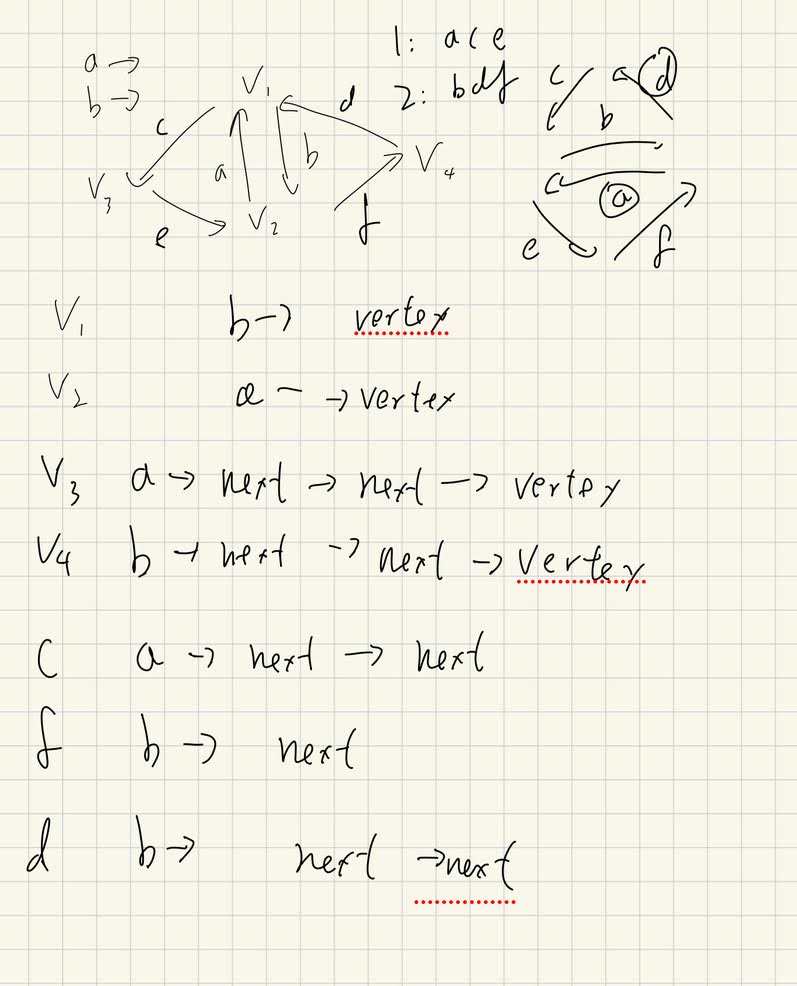 1: ace
a →
b →
2: bdf
V1
d
c
b
a
V3
V2
V4
e
f
c
a
d
b
a
e
f
V1 b → vertex
V2 a - → vertex
V3 a → next → next → vertex
V4 b → next → next → vertex
c a → next → next
f b → next
d b → next → next